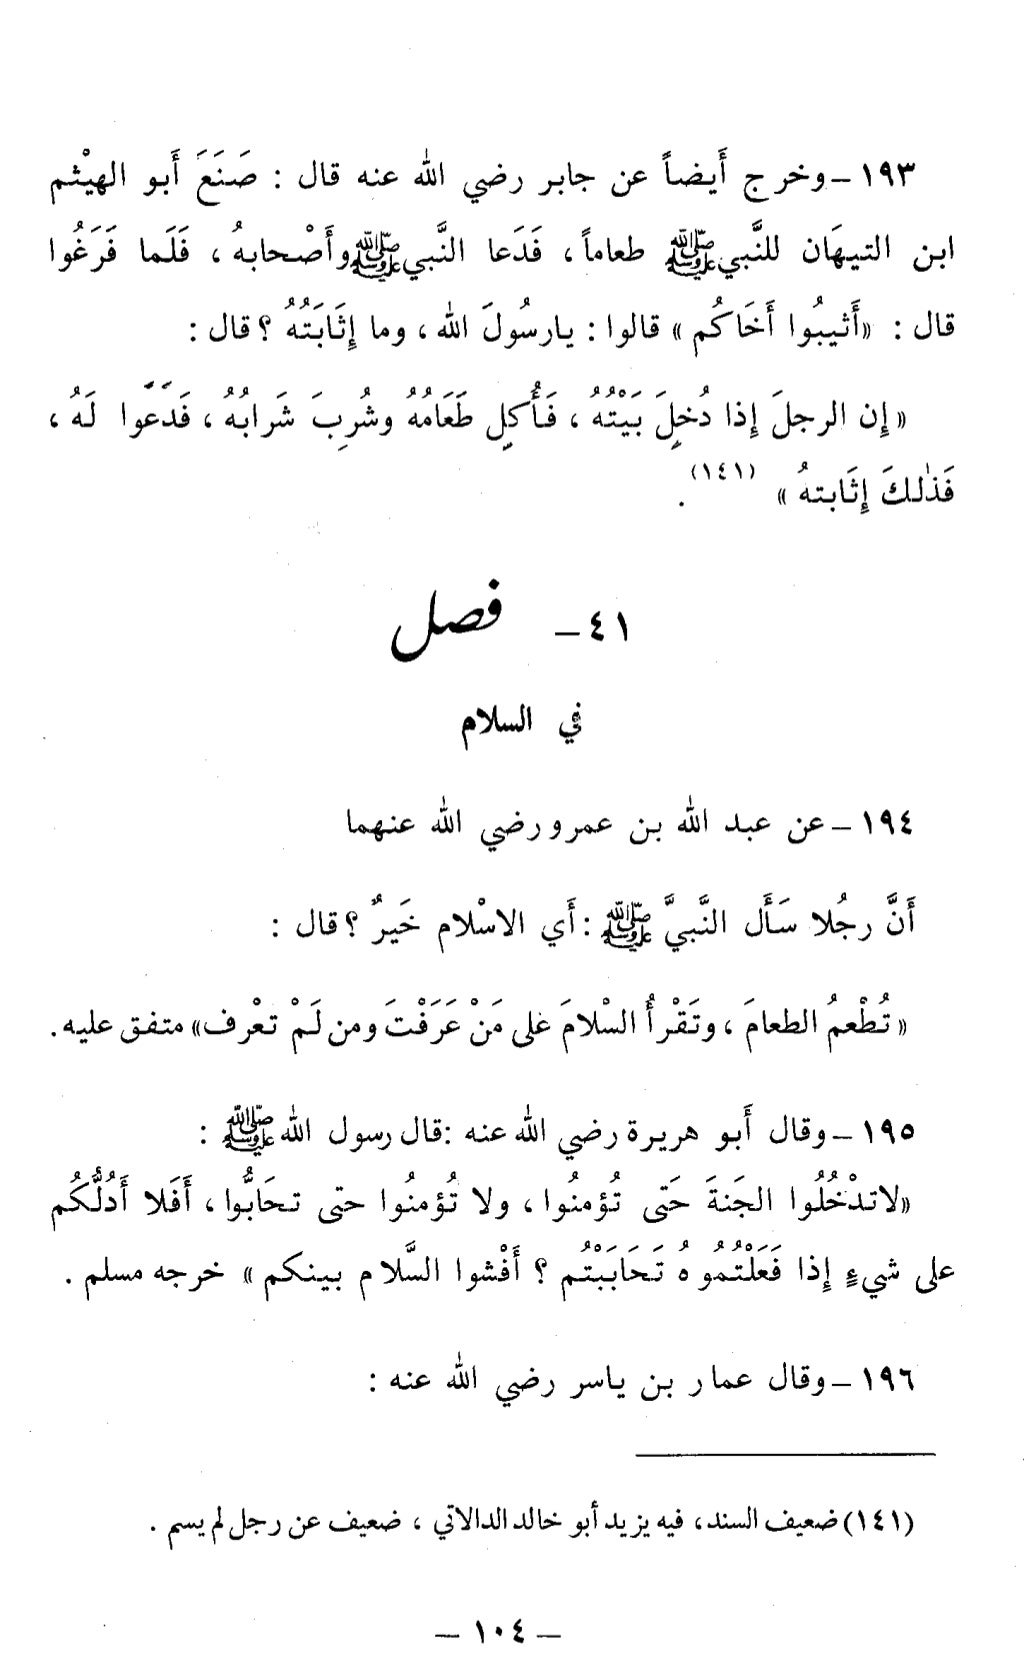 ١٩٣ – وخرج أَيضاً عن جابر رضي الله عنه قال : صَنَعَ أَبو الهيْثم
ابن التيهَان للنَّبي ﷺ طعاماً ، فَدَعا النَّبي ﷺ وأَصْحابهُ ، فَلَما فَرَغُوا
قال : « أَثيبُوا أَخَاكُم » قالوا : يارسُولَ الله ، وما إِثَابَتُهُ ؟ قال :
« إِن الرجلَ إِذا دُخِلَ بَيْتُهُ ، فَأُكِلَ طَعَامُهُ وشُرِبَ شَرابُهُ ، فَدَعَوا لَهُ ،
فَذٰلكَ إِثَابتهُ » (١٤١) .
٤١ – فصل
في السلام
١٩٤ – عن عبد الله بن عمرو رضي الله عنهما
أَنَّ رجُلا سَأَل النَّبيَّ ﷺ : أَي الاسْلام خَيرٌ ؟ قال :
« تُطْعمُ الطعامَ ، وتَقْرأُ السْلامَ عَلى مَنْ عَرَفْتَ ومن لَمْ تعْرف » متفق عليه .
١٩٥ – وقال أَبو هريرة رضي الله عنه : قال رسول الله ﷺ :
« لاتدْخُلُوا الجَنةَ حَتى تُؤمنُوا ، ولا تُؤمنُوا حتى تحَابُّوا ، أَفَلا أَدُلُّكُم
على شيءٍ إِذا فَعَلْتُمُوهُ تَحَابَبْتُم ؟ أَفْشوا السَّلام بينكم » خرجه مسلم .
١٩٦ – وقال عمار بن ياسر رضي الله عنه :
(١٤١) ضعيف السند ، فيه يزيد أبو خالد الدالاتي ، ضعيف عن رجل لم يسم .
– ١٠٤ –